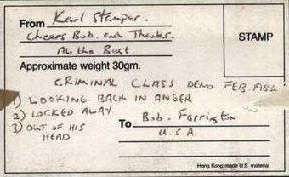 From Karl Stamper.
Cheers Bob. and Thanks
All the Best
STAMP
Approximate weight 30gm.
CRIMINAL CLASS DEMO FEB.
1) LOOKING BACK IN ANGER
2) LOCKED AWAY
3) OUT OF HIS
HEAD
To Bob. Farrington
U.S.A
Hong Kong made U.S. material